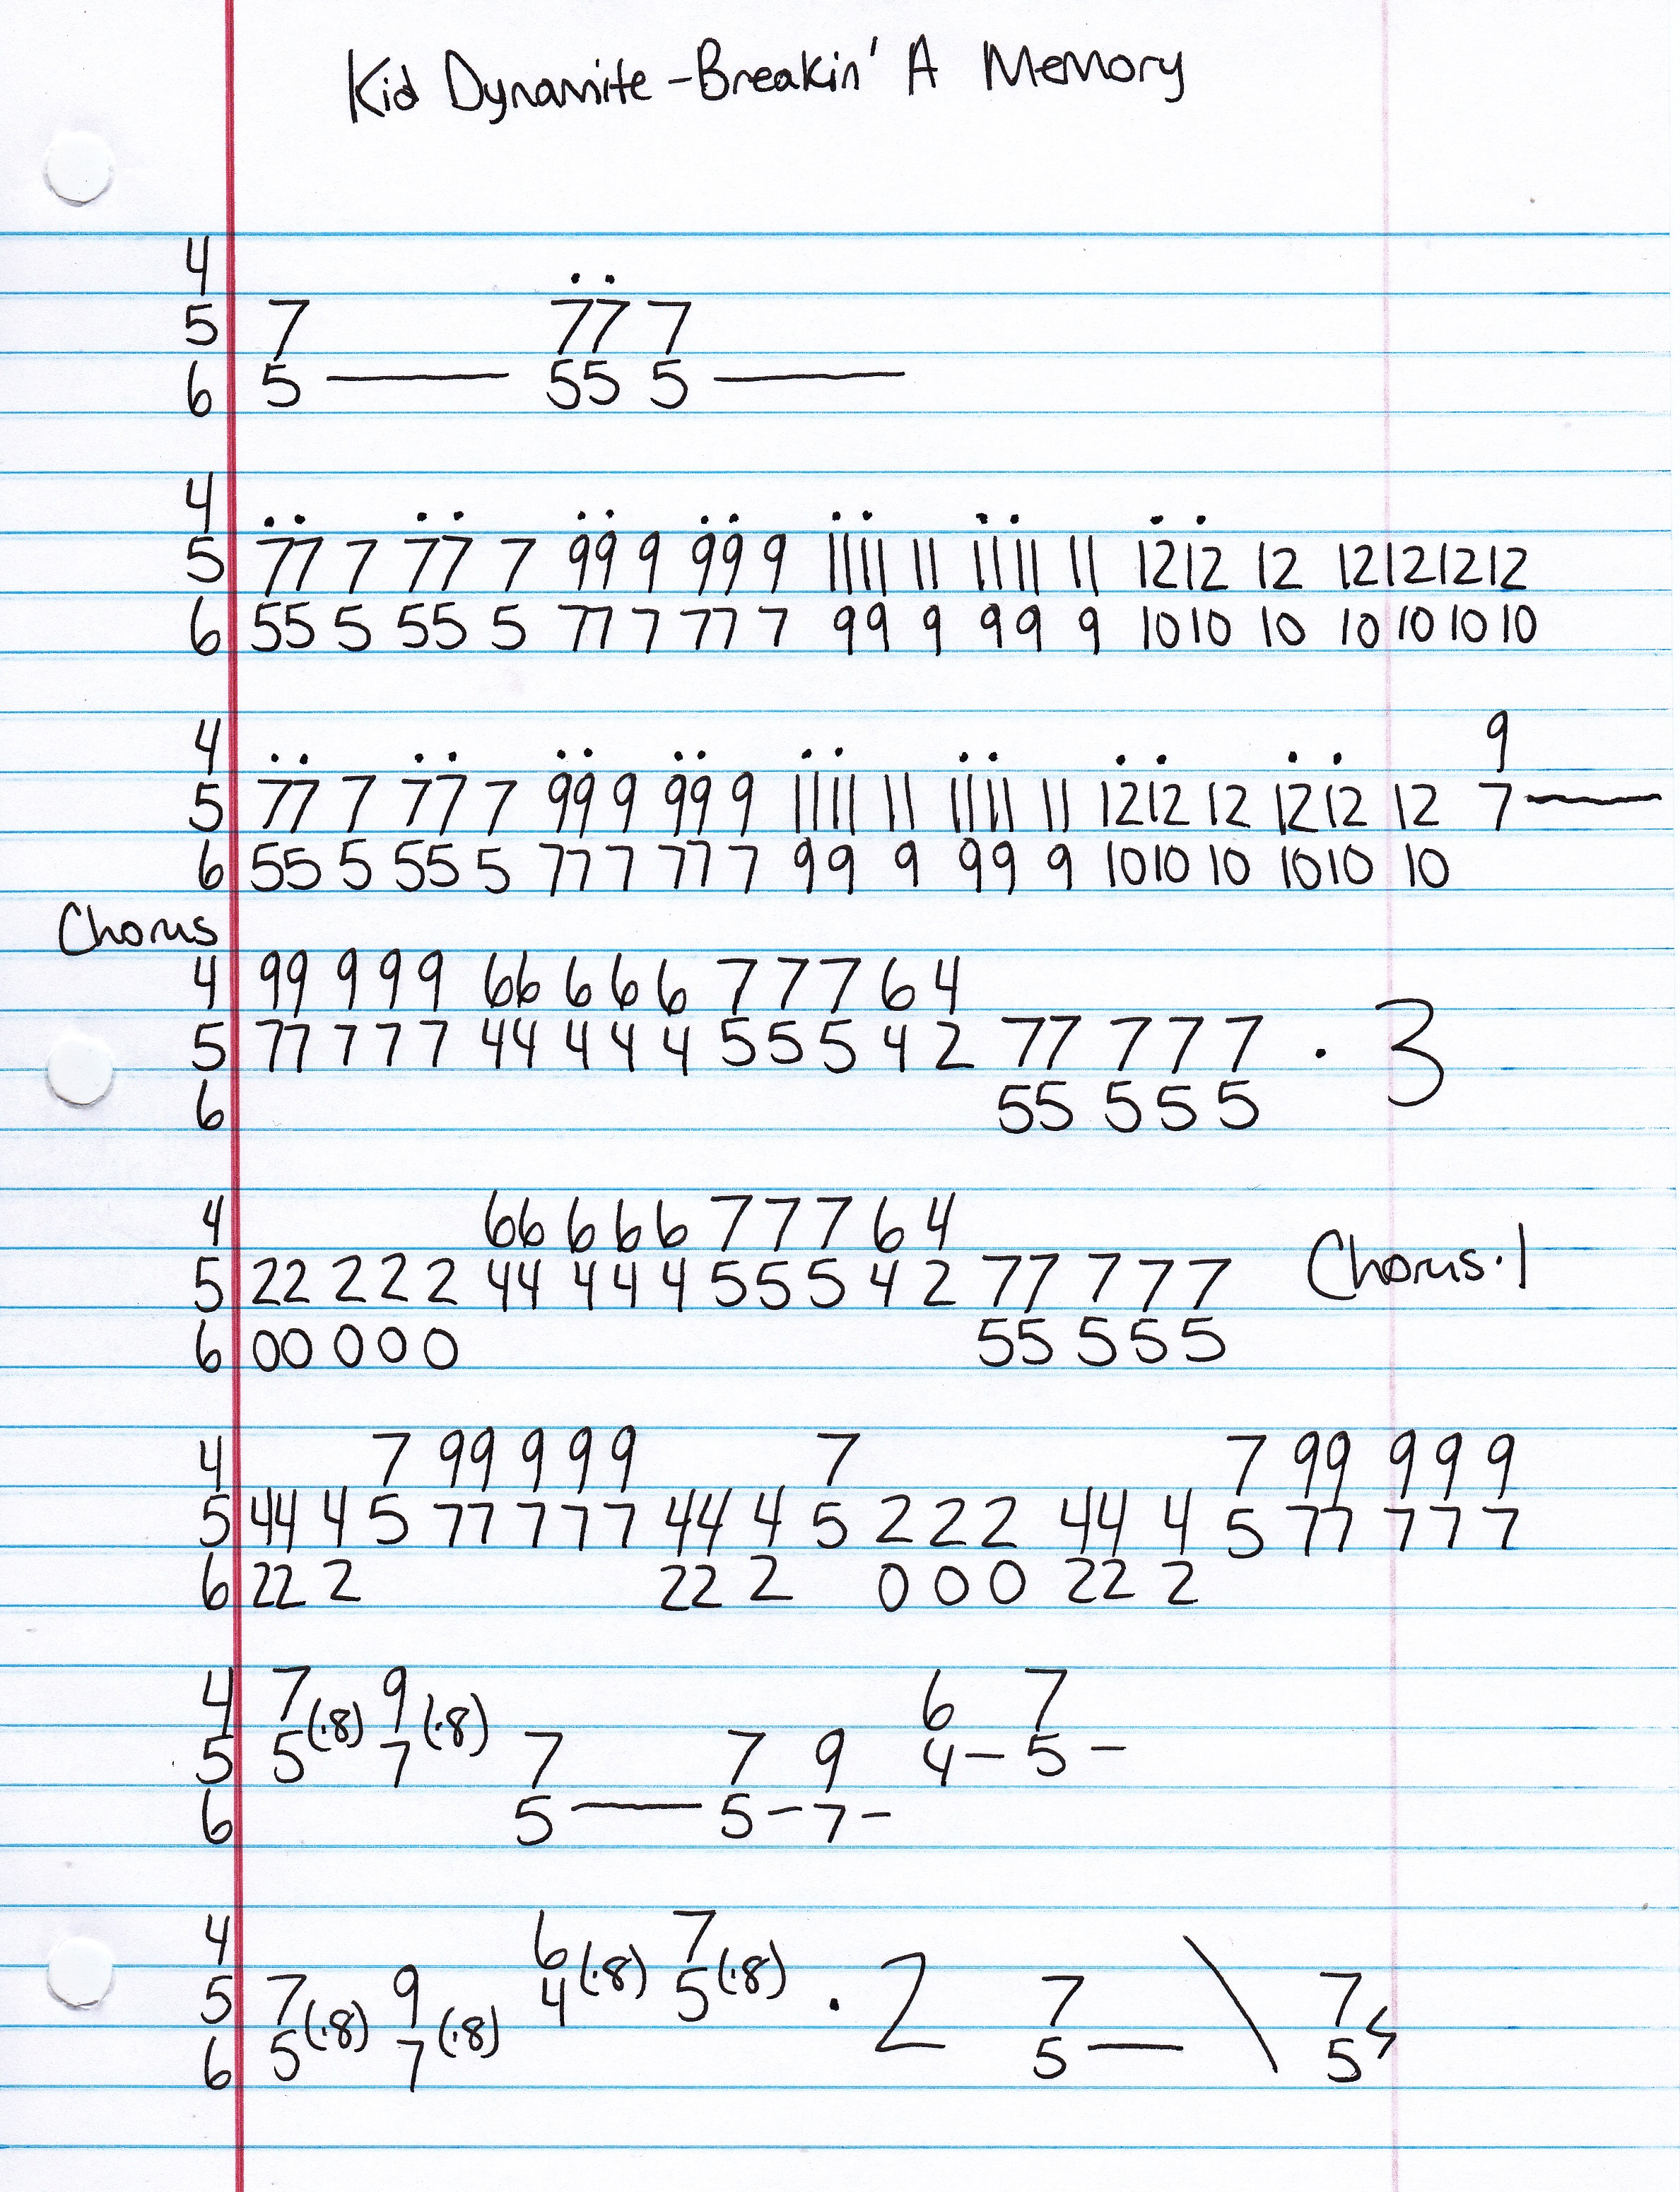 Kid Dynamite - Breakin' A Memory
4 . .
5 7 77 7
6 5 —— 55 5 ——
4 . . . . . . . . . . . . . .
5 77 7 77 7 99 9 99 9 1111 11 1111 11 1212 12 12121212
6 55 5 55 5 77 7 77 7 99 9 99 9 1010 10 10101010
4 . . . . . . . . . . . . . . . . 9
5 77 7 77 7 99 9 99 9 1111 11 1111 11 1212 12 1212 12 7 ——
6 55 5 55 5 77 7 77 7 99 9 99 9 1010 10 1010 10
Chorus
4 99 9 9 9 66 6 6 6 7 7 7 6 4
5 77 7 7 7 44 4 4 4 5 5 5 4 2 77 7 7 7 · 3
6 55 5 5 5
4 66 6 6 6 7 7 7 6 4
5 22 2 2 2 44 4 4 4 5 5 5 4 2 77 7 7 7 Chorus · 1
6 00 0 0 0 55 5 5 5
4 7 99 9 9 9 7 7 99 9 9 9
5 44 4 5 77 7 7 7 44 4 5 2 2 2 44 4 5 77 7 7 7
6 22 2 22 2 0 0 0 22 2
4 7 (·8) 9 (·8) 6 7
5 5 7 7 7 9 4 – 5 –
6 5 —— 5 – 7 –
4 6 (·8) 7 (·8)
5 7 (·8) 9 (·8) 4 5 · 2 7 \ 7
6 5 7 5 —— 5